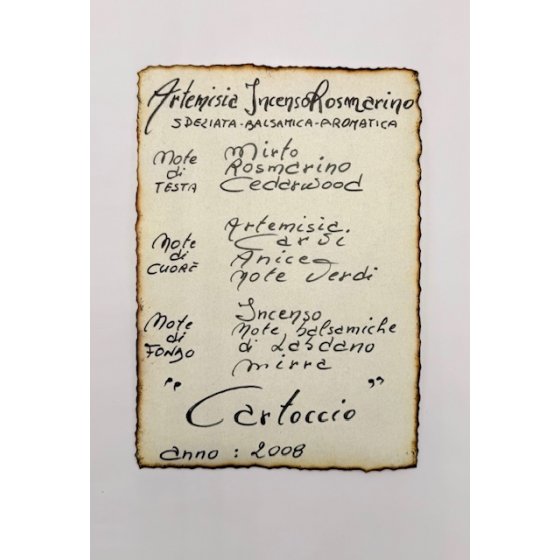 Artemisia Incenso Rosmarino
SPEZIATA-BALSAMICA-AROMATICA
Note di TESTA
Mirto
Rosmarino
Cedarwood
Note di CUORE
Artemisia.
Carvi
Anice
Note Verdi
Note di FONDO
Incenso
Note balsamiche
di Labdano
mirra
"Cartoccio"
anno : 2008